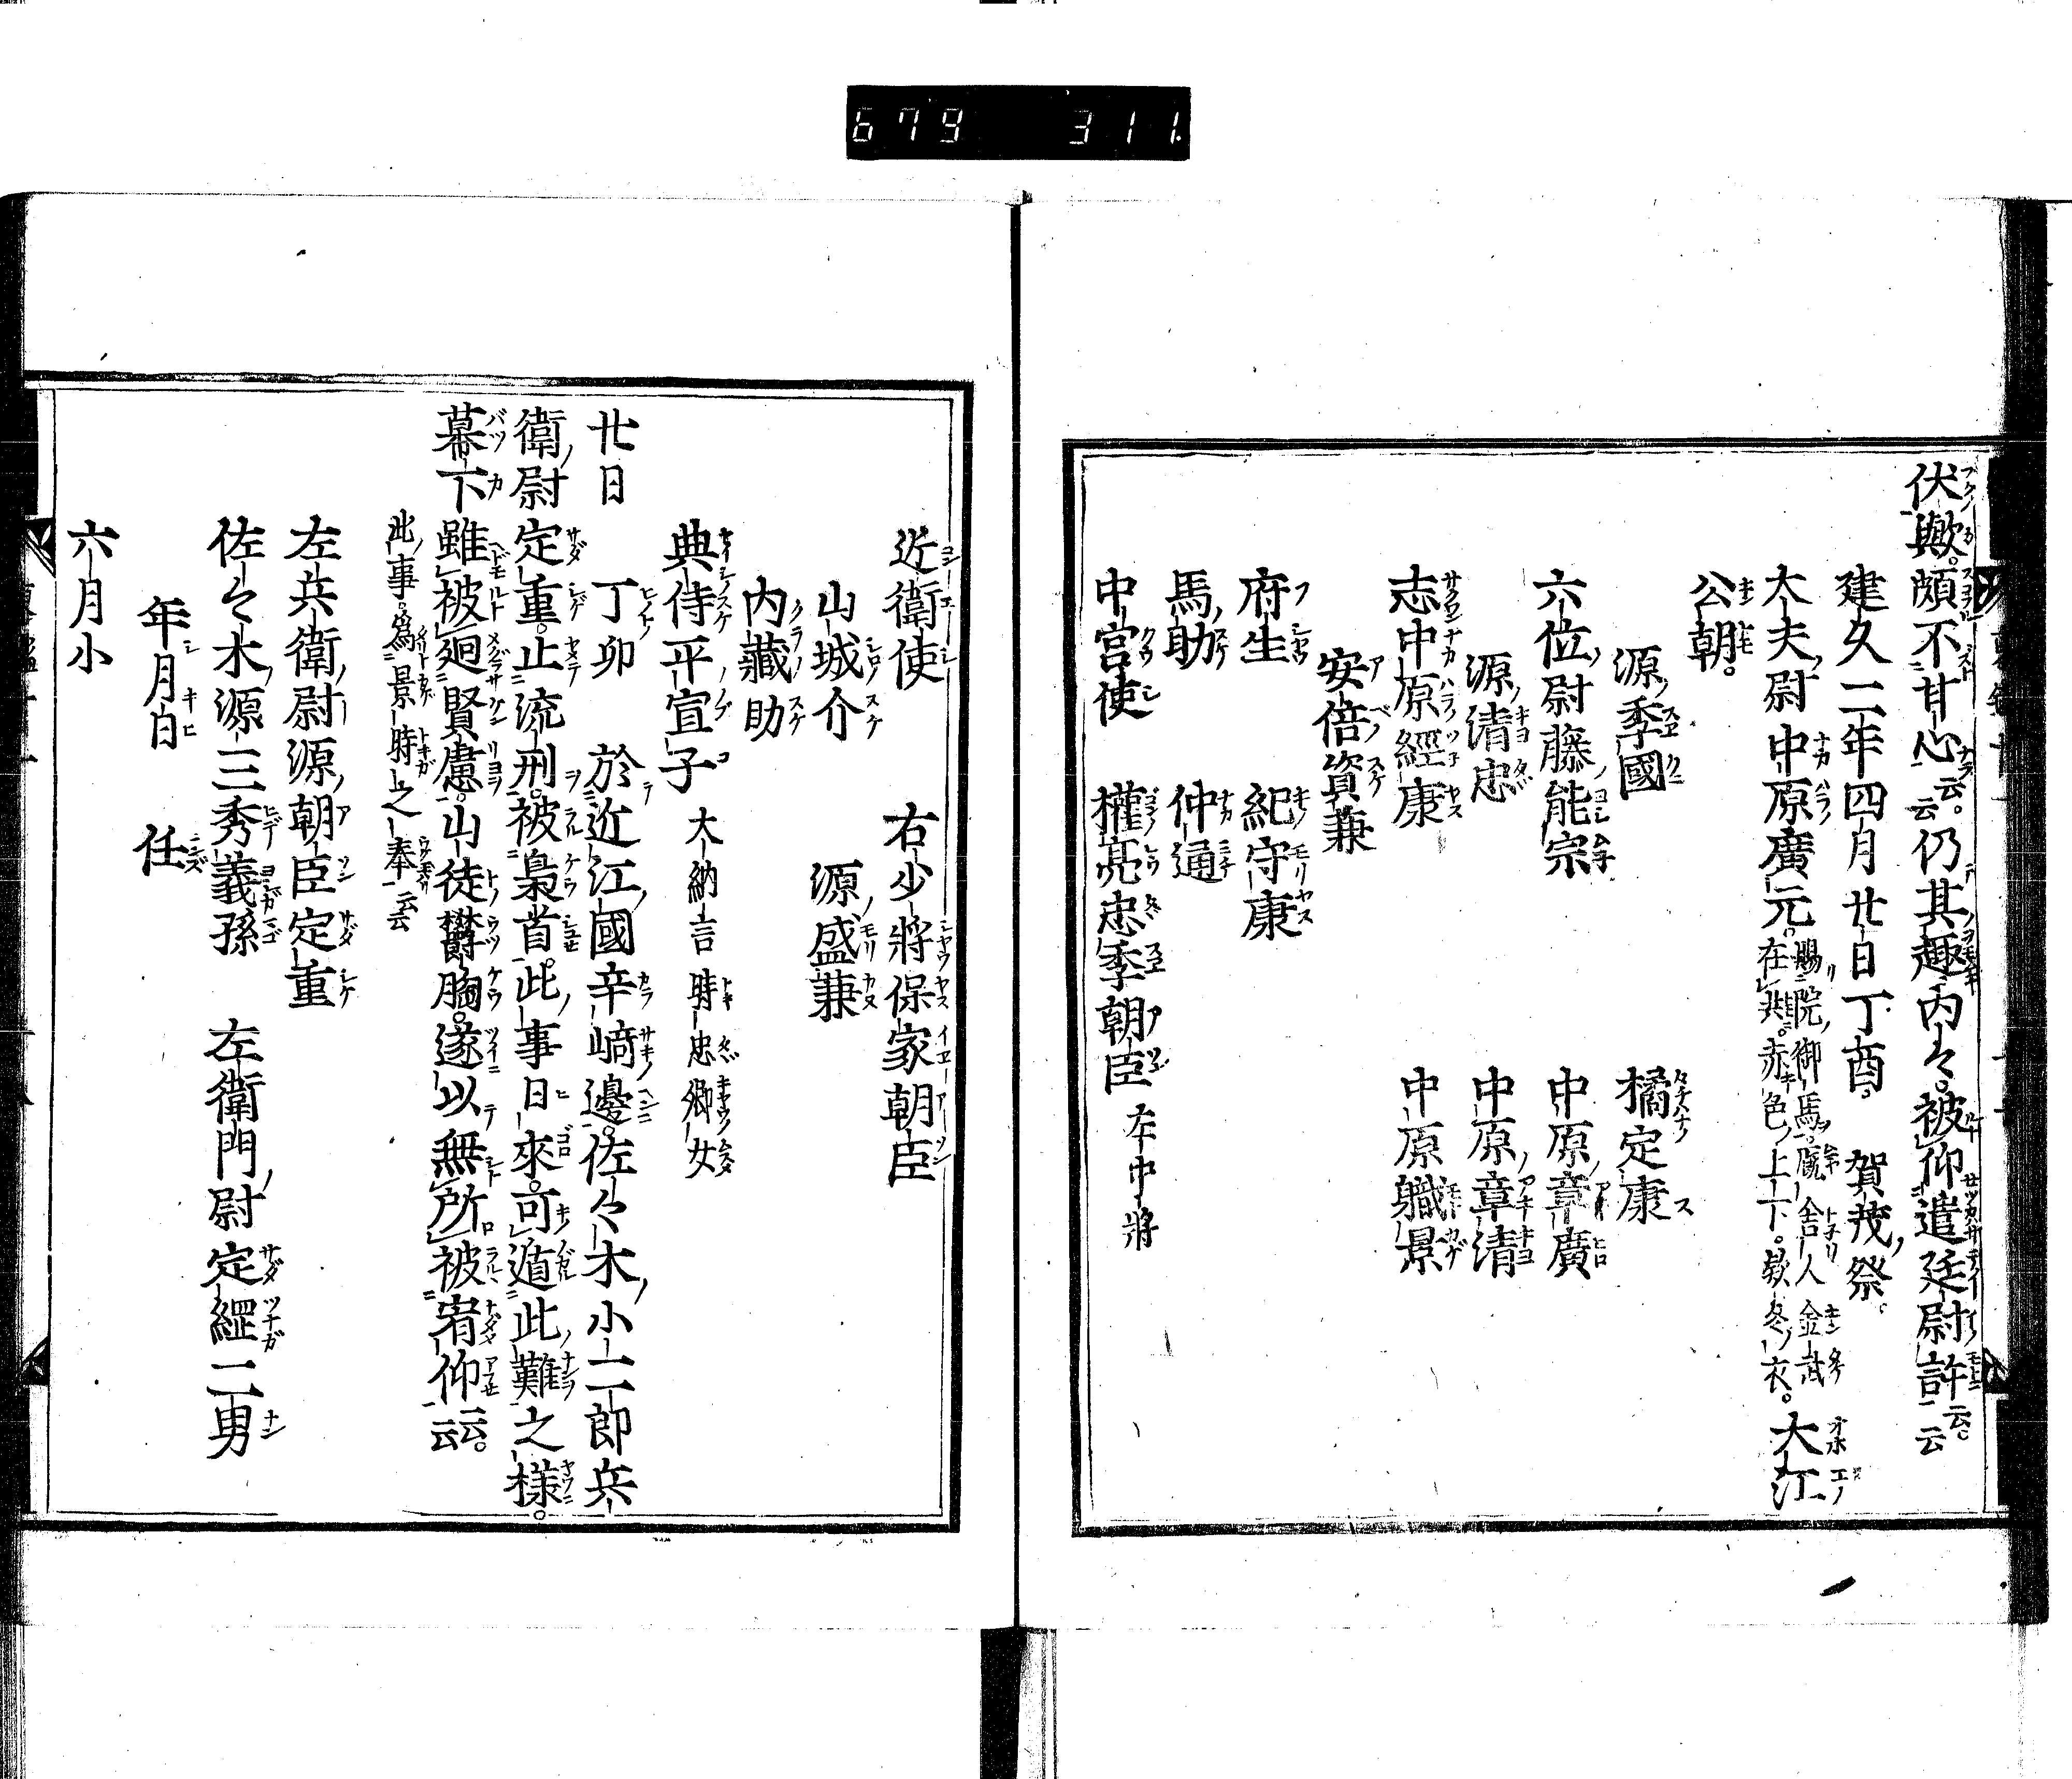 679 311
伏歟。頗不甘心云云。仍其趣内々。被仰遣廷尉許云云
建久二年四月廿日丁酉。賀茂祭。
大夫尉中原廣元。賜院御馬。廐舍人金武在共。赤色上下。欵冬衣。大江
公朝。
源季國 橘定康
六位尉藤能宗 中原章廣
源清忠 中原章清
志中原經康 中原職景
安倍資兼
府生 紀守康
馬助 仲通
中宮使 權亮忠季朝臣 本中將
近衛使 右少將保家朝臣
山城介 源盛兼
内藏助
典侍平宣子 大納言時忠卿女
廿日 丁卯 於近江國辛﨑邊。佐々木小二郎兵
衛尉定重。止流刑。被梟首。此事日來。可遁此難之樣。
幕下雖被廻賢慮。山徒欝胸。遂以無所被宥仰云云。
此事。爲景時之奉云云
左兵衛尉源朝臣定重
佐々木源三秀義孫 左衛門尉定綱二男
年月日 任
六月小